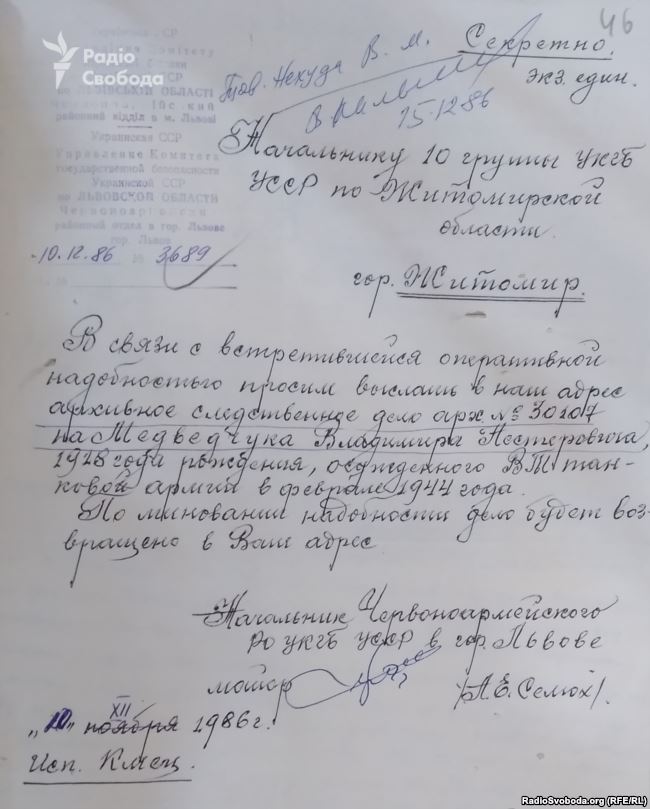 46
Радіо
Свобода
Секретно.
экз. един.
Тов. Некуда В. М.
15.12.86
Украинская ССР
Управление Комитета
государственной безопасности
Украинской ССР
по ЛЬВОВСКОЙ ОБЛАСТИ
районный отдел в гор. Львове
гор. Львов
10.12.86 № 3689
Начальнику 10 группы УКГБ
УССР по Житомирской
области.
гор. Житомир.
В связи с встретившейся оперативной
надобностью просим выслать в наш адрес
архивное следственное дело арх № 30107
на Медведчука Владимира Нестеровича,
1918 года рождения, осужденного ВТ тан-
ковой армии в феврале 1944 года.
По миновании надобности дело будет воз-
вращено в Ваш адрес
Начальник Червоноармейского
РО УКГБ УССР в гор. Львове
майор /А.Е. Семюх/.
XII
„10" ноября 1986 г.
Исп. Клец
RadioSvoboda.org (RFE/RL)